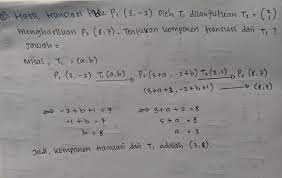 Hasil translasi titik P₁ (3, -2) oleh T₁ dilanjutkan T₂ = (2 1)
menghasilkan P₂ (8,7). Tentukan komponen translasi dari T₁ ?
Jawab =
Misal, T₁ = (a,b)
P₁ (3, -2) T₁ (a,b) → P₂' (3+a, -2+b) T₂ (2,1) → P₂ (8,7)
(3+a+2, -2+b+1) → (8,7)
⇔ -2+b+1 = 7 ⇔ 3+a+2 = 8
-1+b = 7 5+a = 8
b = 8 a = 3
Jadi, komponen translasi dari T₁ adalah (3,8).